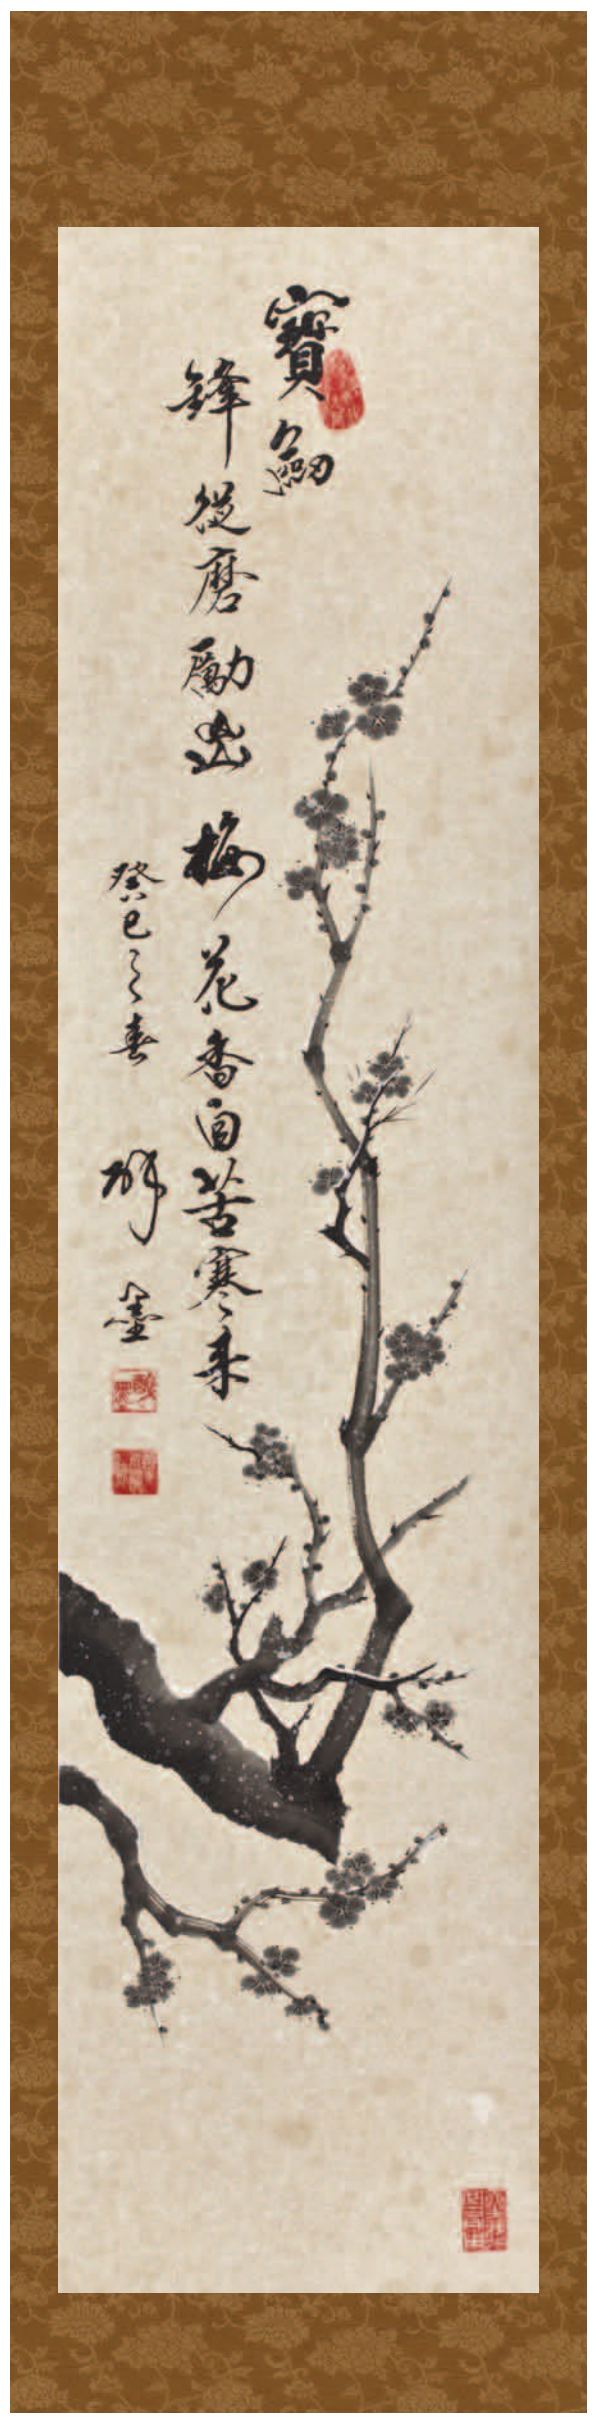 寶劒
鋒從磨勵出梅花香自苦寒来
癸巳之春 墨